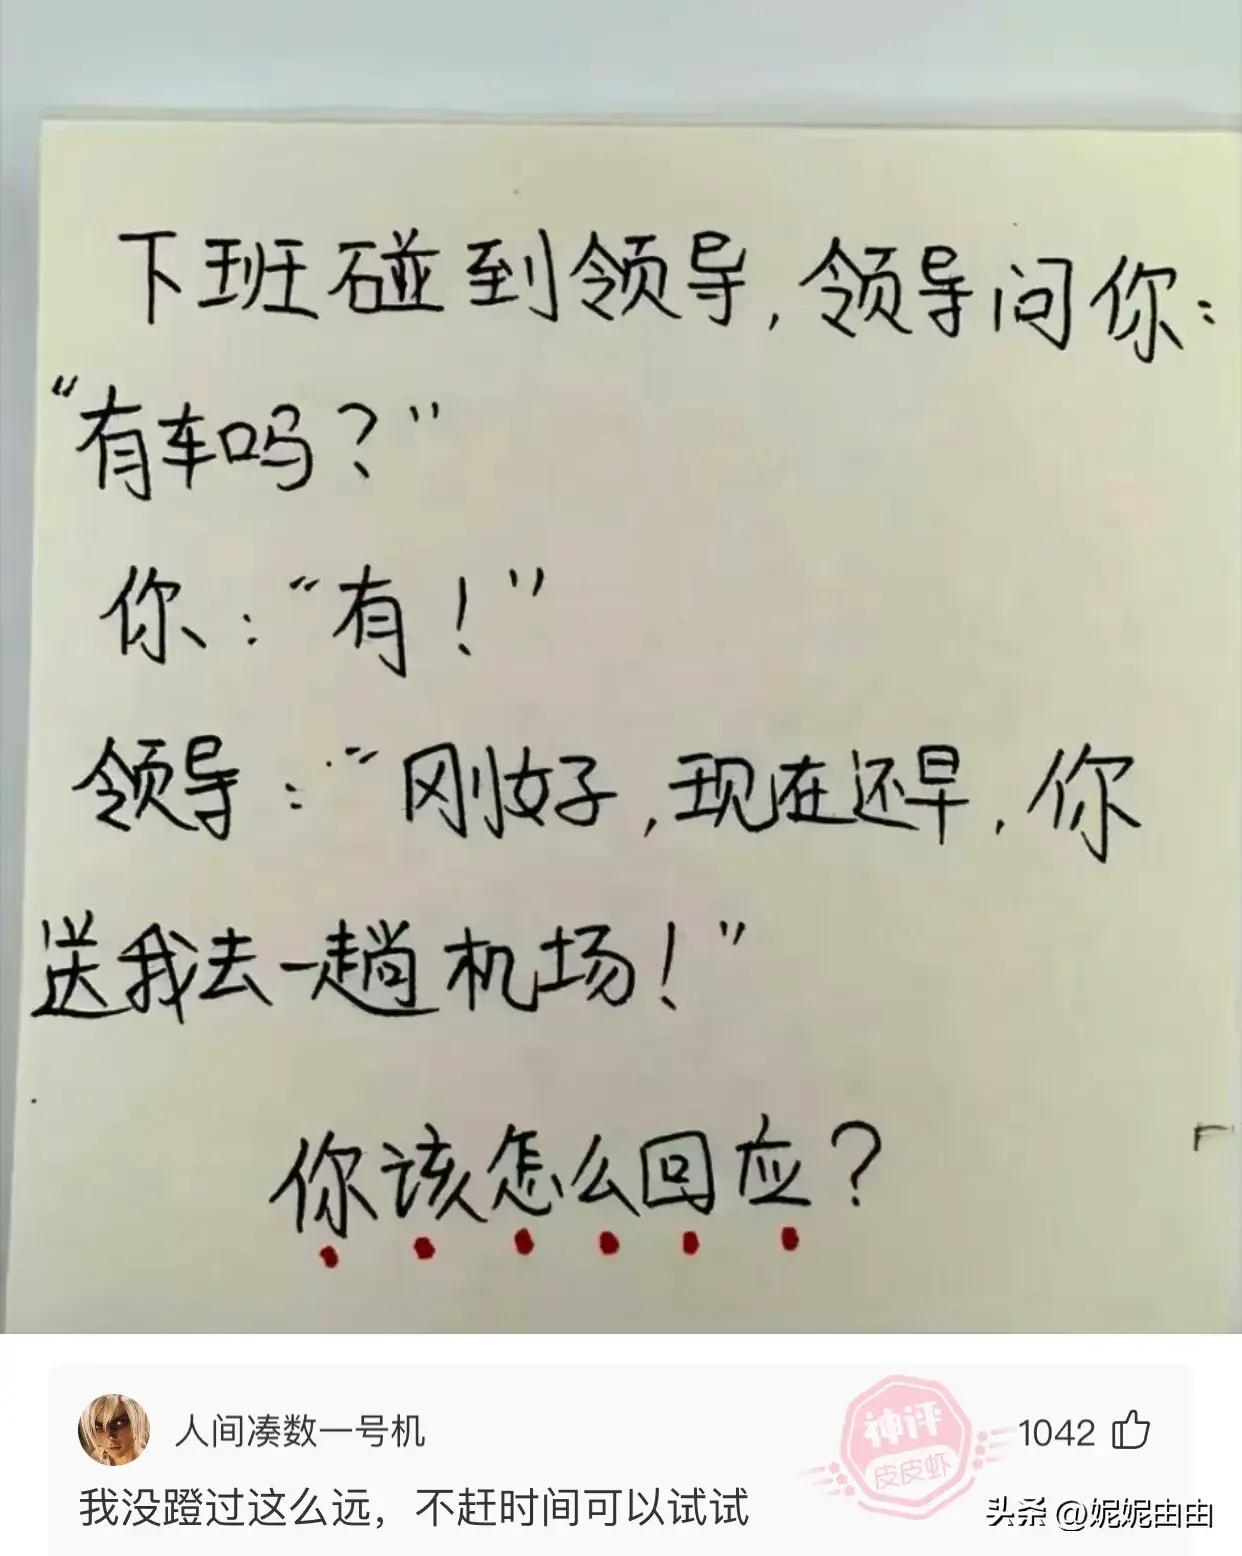 下班碰到领导,领导问你:
“有车吗?”
你:“有!”
领导:“刚好,现在还早,你
送我去一趟机场!”
你该怎么回应?
人间凑数一号机
神评
皮皮虾
1042
我没蹬过这么远,不赶时间可以试试
头条 @妮妮由由